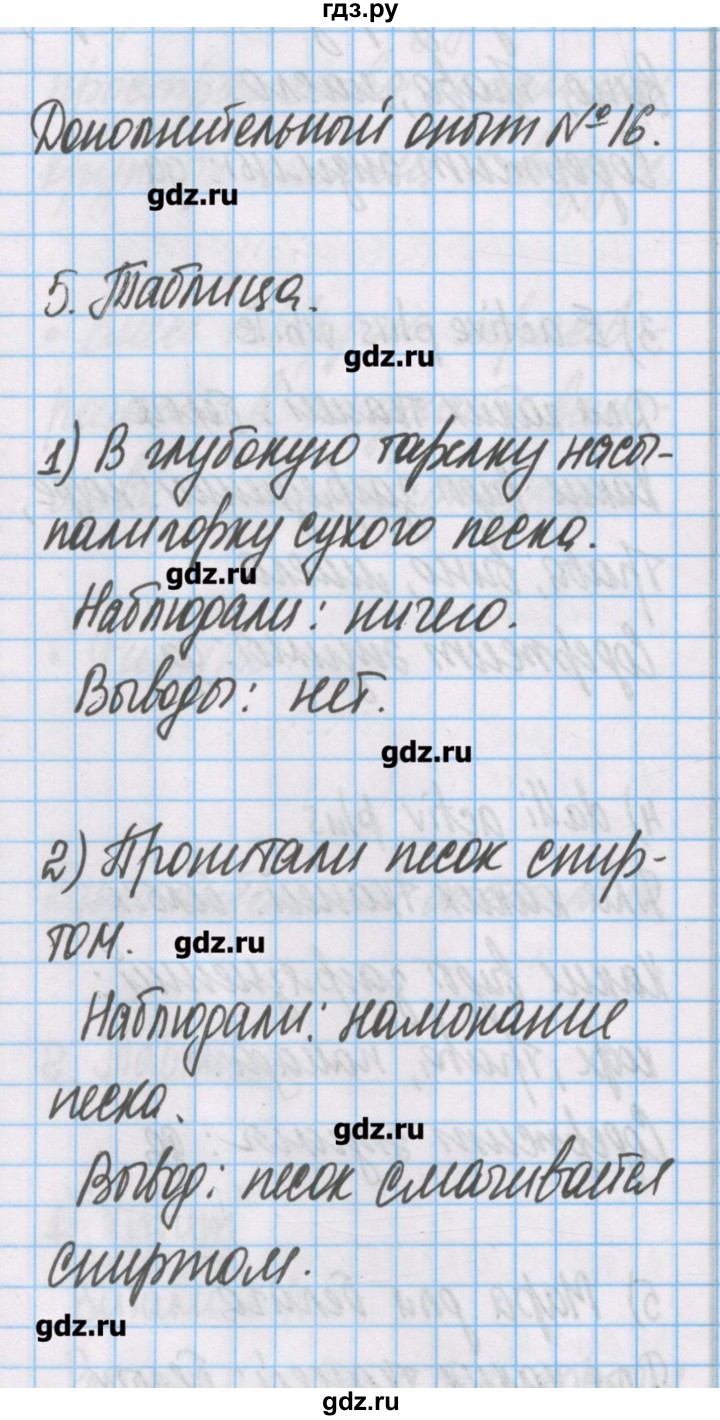 гдз.ру
Дополнительный опыт №16.
gdz.ru
5. Таблица.
gdz.ru
1) В глубокую тарелку насы-
пали горку сухого песка.
gdz.ru
Наблюдали: ничего.
Выводы: нет.
gdz.ru
2) Пропитали песок спир-
том.
gdz.ru
Наблюдали: намокание
песка.
gdz.ru
Вывод: песок смачивается
спиртом.
gdz.ru
gdz.ru